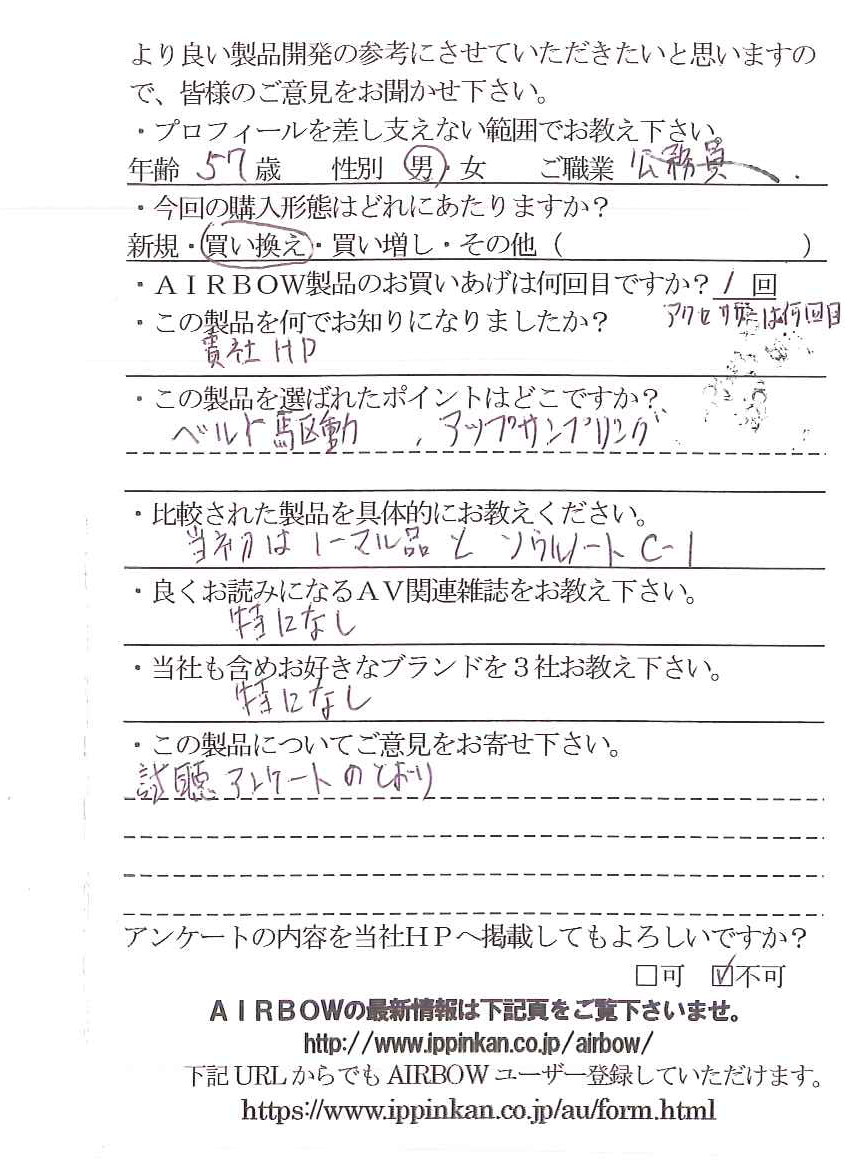 より良い製品開発の参考にさせていただきたいと思いますの
で、皆様のご意見をお聞かせ下さい。
・プロフィールを差し支えない範囲でお教え下さい。
年齢 57 歳 性別 男・女 ご職業 公務員
・今回の購入形態はどれにあたりますか？
新規・買い換え・買い増し・その他（ ）
・ＡＩＲＢＯＷ製品のお買いあげは何回目ですか？ 1 回
アクセサリーは何回目
・この製品を何でお知りになりましたか？
貴社HP
・この製品を選ばれたポイントはどこですか？
ベルト駆動 、アップサンプリング
・比較された製品を具体的にお教えください。
当初はノーマル品と ソウルノート C-1
・良くお読みになるＡＶ関連雑誌をお教え下さい。
特になし
・当社も含めお好きなブランドを３社お教え下さい。
特になし
・この製品についてご意見をお寄せ下さい。
試聴アンケートのとおり
アンケートの内容を当社ＨＰへ掲載してもよろしいですか？
□可 ☑不可
ＡＩＲＢＯＷの最新情報は下記頁をご覧下さいませ。
http://www.ippinkan.co.jp/airbow/
下記 URL からでも AIRBOW ユーザー登録していただけます。
https://www.ippinkan.co.jp/au/form.html